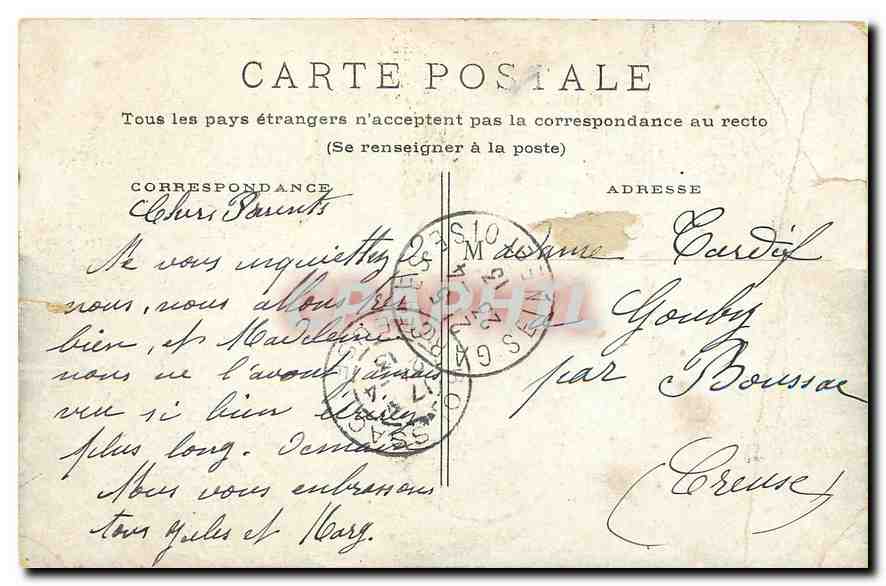 CARTE POSTALE
Tous les pays étrangers n'acceptent pas la correspondance au recto
(Se renseigner à la poste)
CORRESPONDANCE
Chers Parents
Ne vous inquiettez
nous, nous allons très
bien, et Madeleine
nous ne l'avons jamais
veu si bien
plus long. Demain
Nous vous enbrassons
tous et Marg.
ADRESSE
Madame Tardif
à Gouby
par Boussac
(Creuse)